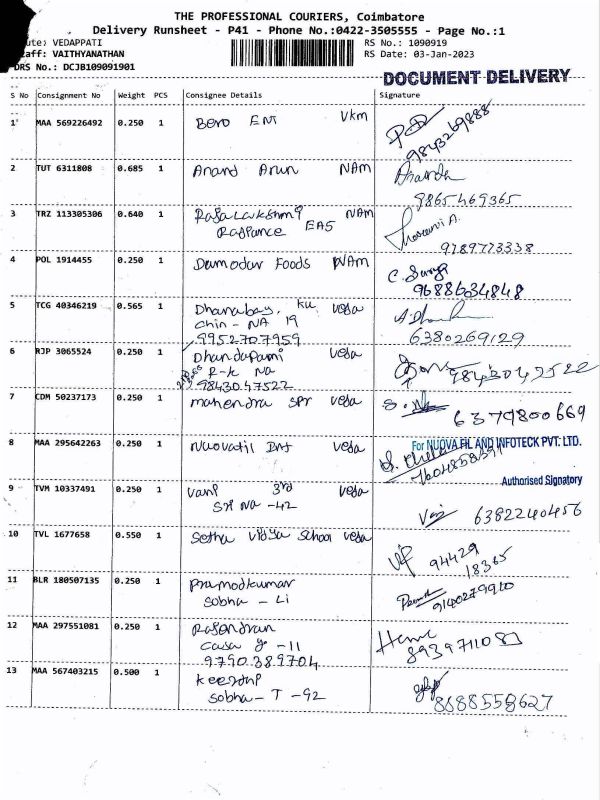 THE PROFESSIONAL COURIERS, Coimbatore
Delivery Runsheet - P41 - Phone No.:0422-3505555 - Page No.:1
ute: VEDAPPATI RS No.: 1090919
taff: VAITHYANATHAN RS Date: 03-Jan-2023
DRS No.: DCJB109091901
DOCUMENT DELIVERY
S No Consignment No Weight PCS Consignee Details Signature
1 MAA 569226492 0.250 1 Bero Ent Vkm
9843269888
2 TUT 6311808 0.685 1 Anand Arun NAm
9865469365
3 TRZ 113305306 0.640 1 Rajalakshmi NAm
Radiance EAS
9789773338
4 POL 1914455 0.250 1 Damodar Foods NAm C. Surya
9688634848
5 TCG 40346219 0.565 1 Dhanabay. ku veda
Chin - NA 19
9952707959 6380269129
6 RJP 3065524 0.250 1 Dhandapami veda
R-k NA
9843047522 9843047522
7 CDM 50237173 0.250 1 mahendra spr veda
6379800669
8 MAA 295642263 0.250 1 Nuovatil Int veda For NUOVA FIL AND INFOTECK PVT. LTD.
Authorised Signatory
9 TVM 10337491 0.250 1 vani 3rd veda
SM NA -42 6382240456
10 TVL 1677658 0.550 1 Setha vidya school veda
94429
18365
11 BLR 180507135 0.250 1 pramodkumar
sobha - Li 9140279910
12 MAA 297551081 0.250 1 Rajendran
casa g - 11 8939711081
9790389704
13 MAA 567403215 0.500 1
sobha - T -92 8888558627